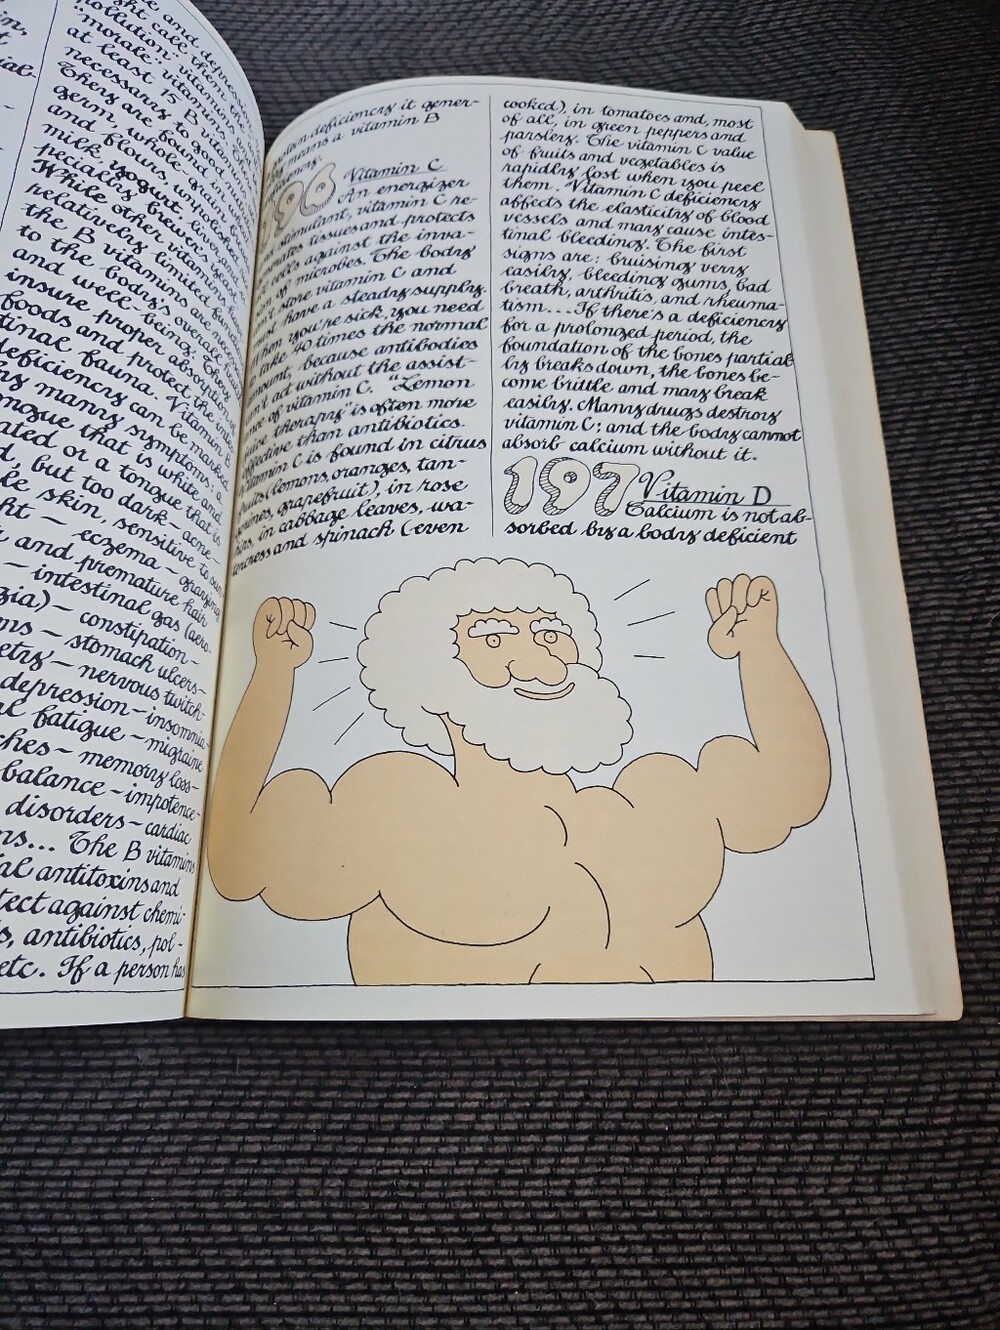 in,
t
ial.
-
ght call them the
pollution" vitamins and
"morale" vitamins.
at least 15 B vitamins
necessary to good
They are found in
germ, whole-grain
and flours, unpolished
milk, yogurt, liver, and es-
pecially brewer's yeast.
While other vitamins have
relatively limited functions,
the B vitamins are necessary
to the body's overall health
and well-being. They
insure proper absorption of
foods and protect the intes-
tinal fauna. Vitamin B
deficiency can be marked
by many symptoms: a
ongue that is white and
ated or a tongue that is
d, but too dark – acne –
ke skin, sensitive to sun
ht – eczema – graying
and premature hair
– intestinal gas (aero-
gia) – constipation –
ms – stomach ulcers –
etry – nervous twitch-
depression – insomnia –
al fatigue – migraine
ches – memory loss –
balance – impotence –
disorders – cardiac
ns... The B vitamins
al antitoxins and
tect against chemi-
s, antibiotics, pol-
etc. If a person has
deficiency it gener-
means a vitamin B
196 Vitamin C
An energizer
stimulant, vitamin C re-
tissues and protects
cells against the inva-
of microbes. The body
store vitamin C and
must have a steady supply.
When you're sick, you need
take 40 times the normal
amount, because antibodies
n't act without the assist-
ance of vitamin C. "Lemon
juice therapy" is often more
effective than antibiotics.
Vitamin C is found in citrus
fruits (lemons, oranges, tan-
gerines, grapefruit), in rose
hips, in cabbage leaves, wa-
tercress and spinach (even
cooked), in tomatoes and, most
of all, in green peppers and
parsley. The vitamin C value
of fruits and vegetables is
rapidly lost when you peel
them. Vitamin C deficiency
affects the elasticity of blood
vessels and may cause intes-
tinal bleeding. The first
signs are: bruising very
easily, bleeding gums, bad
breath, arthritis, and rheuma-
tism... If there's a deficiency
for a prolonged period, the
foundation of the bones partial-
ly breaks down, the bones be-
come brittle and may break
easily. Many drugs destroy
vitamin C; and the body cannot
absorb calcium without it.
197 Vitamin D
Calcium is not ab-
sorbed by a body deficient